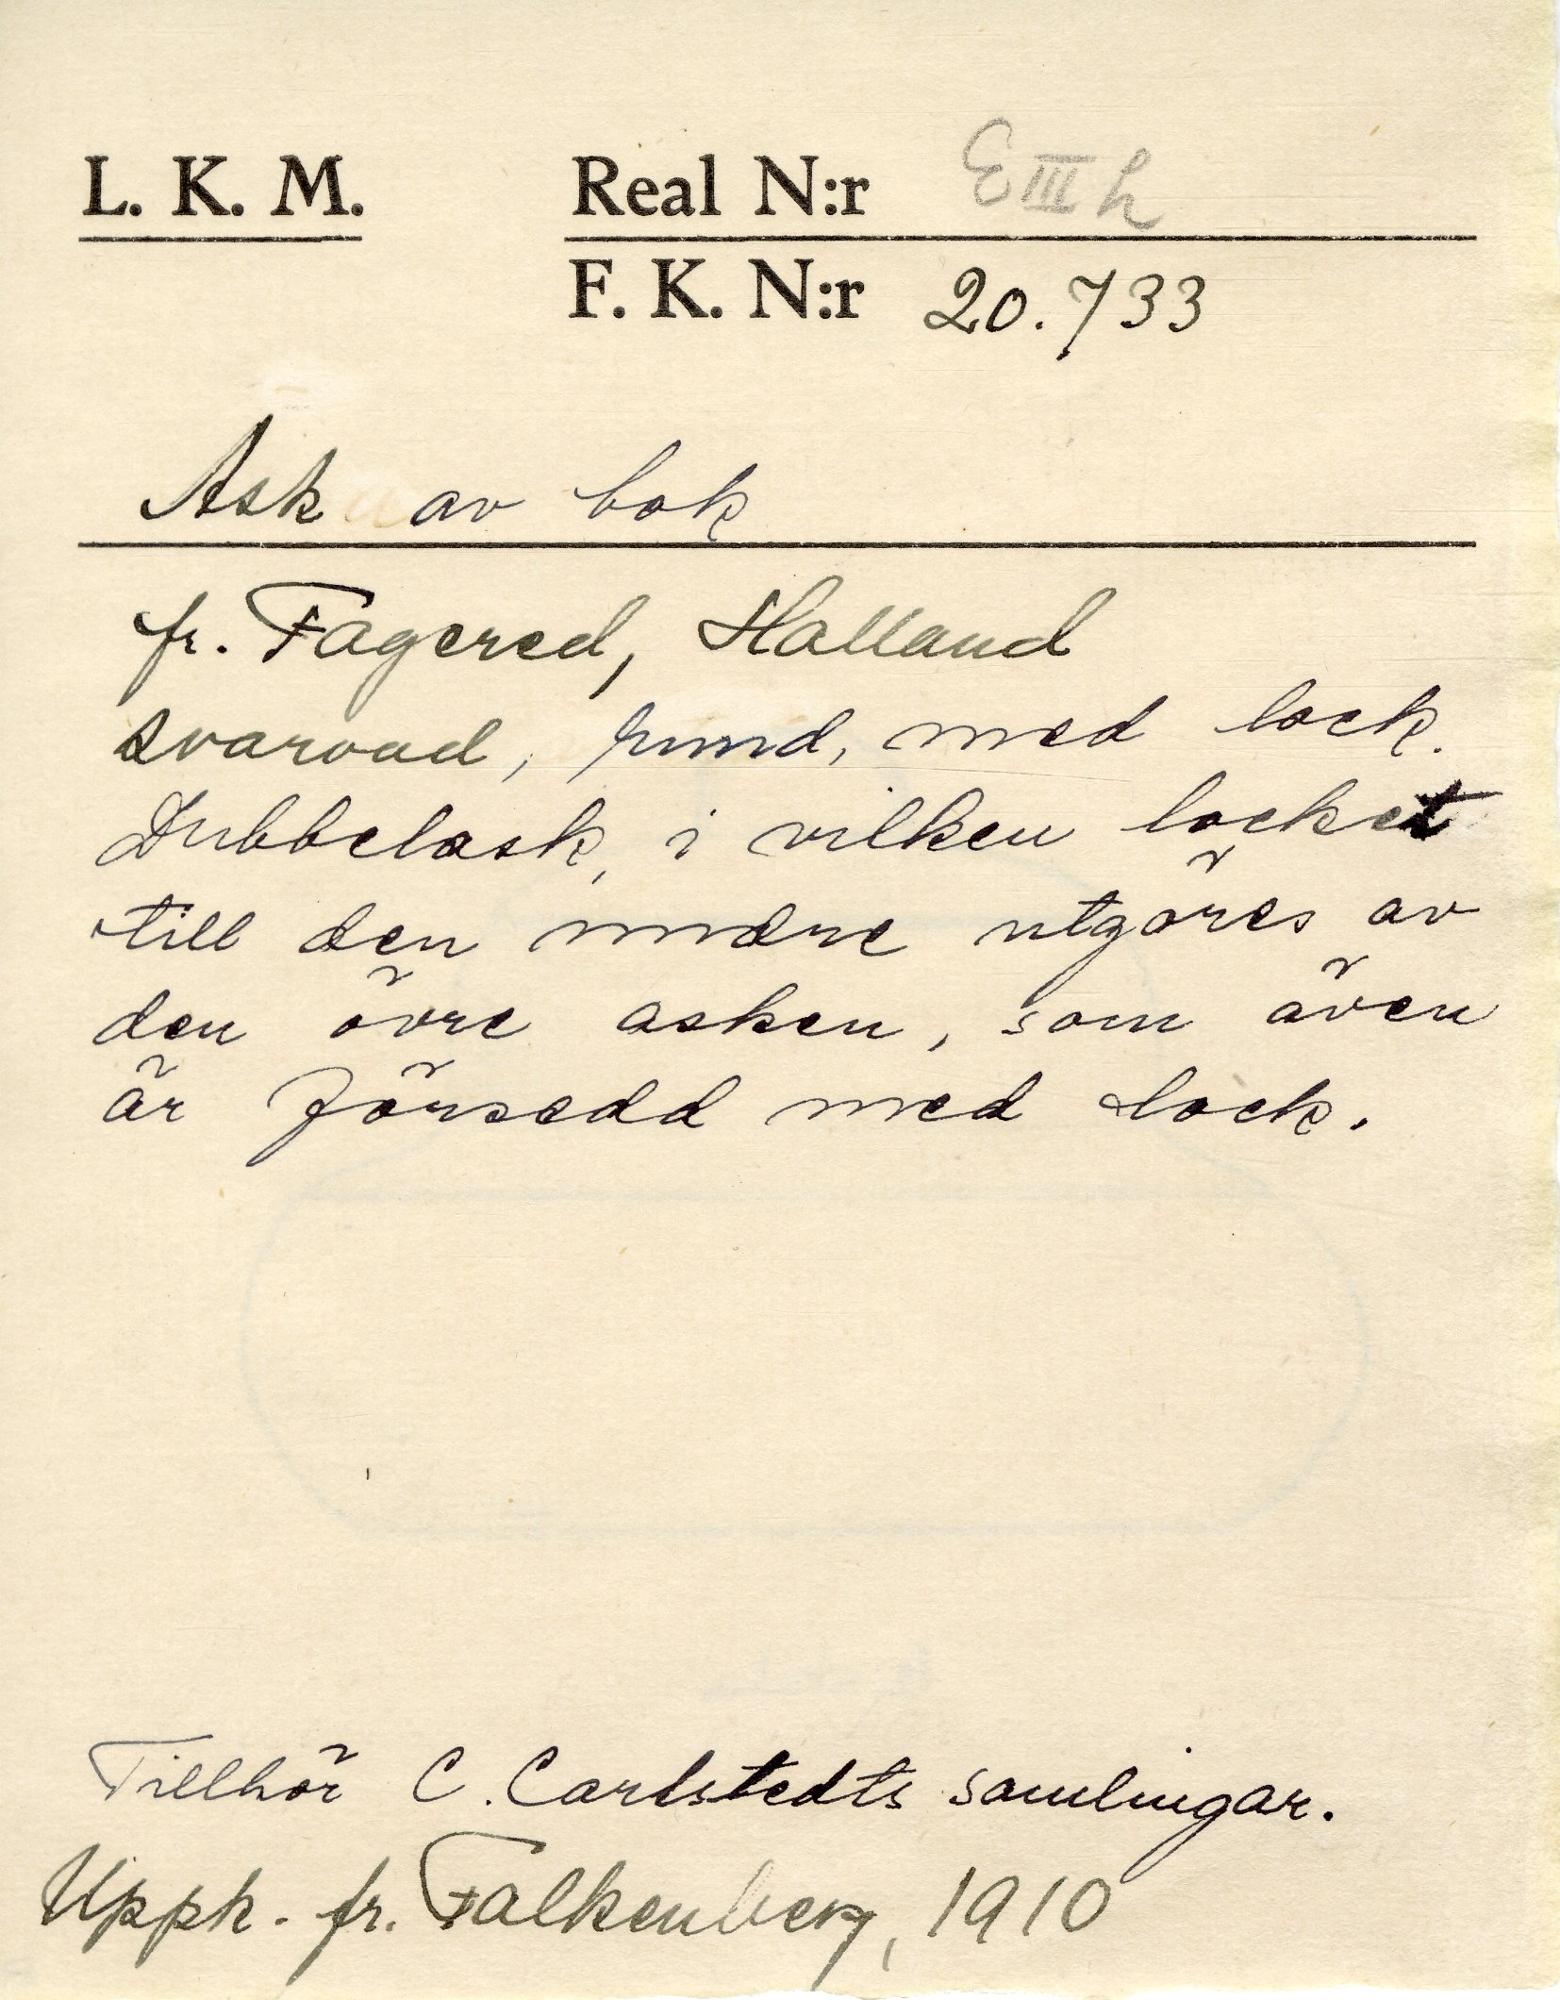 L. K. M.
Real N:r E III h
F. K. N:r 20.733
Ask av bok
fr. Fagered, Halland
svarvad, rund, med lock.
Dubbelask, i vilken locket
till den undre utgöres av
den övre asken, som även
är försedd med lock.
Tillhör C. Carlstedts samlingar.
Uppk. fr. Falkenberg, 1910